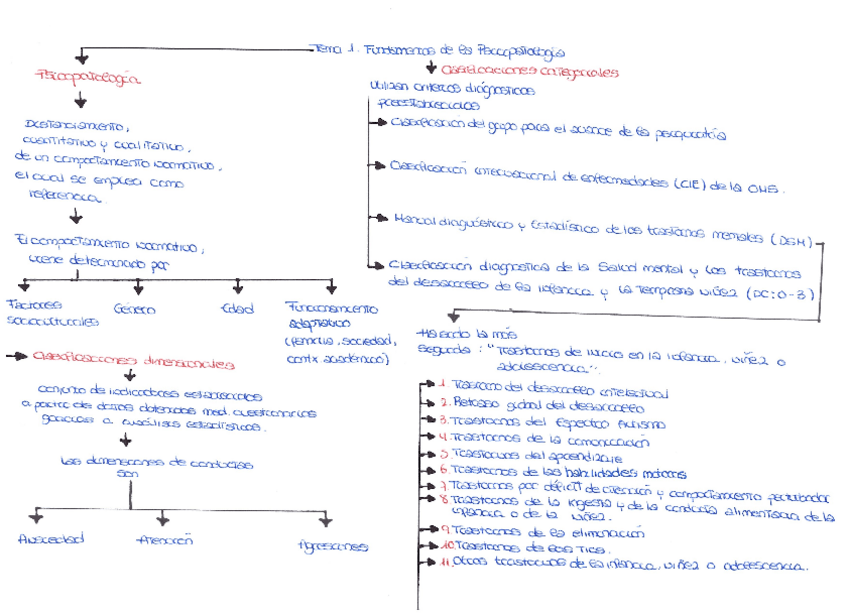 Tema 1. Fundamentos de la Psicopatología
Psicopatología
Distanciamiento,
cuantitativo y cualitativo,
de un comportamiento normativo,
el cual se emplea como
referencia.
El comportamiento normativo,
viene determinado por
Factores
socioculturales
Género
Edad
Funcionamiento
adaptativo
(familia, sociedad,
contx académico)
Clasificaciones dimensionales
conjunto de indicadores establecidos
a partir de datos obtenidos med. cuestionarios
gracias a análisis estadísticos.
Las dimensiones de conductas
son
Ansiedad
Atención
Agresiones
Clasificaciones categoriales
Utilizan criterios diagnósticos
preestablecidos
Clasificación del grupo para el avance de la psiquiatría
Clasificación internacional de enfermedades (CIE) de la OMS.
Manual diagnóstico y Estadístico de los trastornos mentales (DSM)
Clasificación diagnostica de la Salud mental y los trastornos
del desarrollo de la infancia y la Temprana niñez (DC:0-3)
Siendo la más
seguida: "Trastornos de inicio en la infancia, niñez o
adolescencia".
1. Trastorno del desarrollo intelectual
2. Retraso global del desarrollo
3. Trastornos del Espectro Autismo
4. Trastornos de la comunicación
5. Trastornos del aprendizaje
6. Trastornos de las habilidades motoras
7. Trastornos por déficit de atención y comportamiento perturbador
8. Trastornos de la ingesta y de la conducta alimentaria de la
infancia o de la niñez.
9. Trastornos de la eliminación
10. Trastornos de los Tics.
11. Otros trastornos de la infancia, niñez o adolescencia.